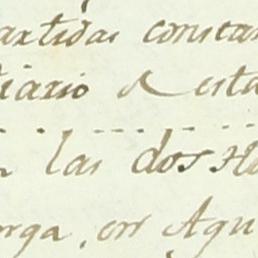 artidas constan
tiario de esta
las dos Ha
orga, en Agu